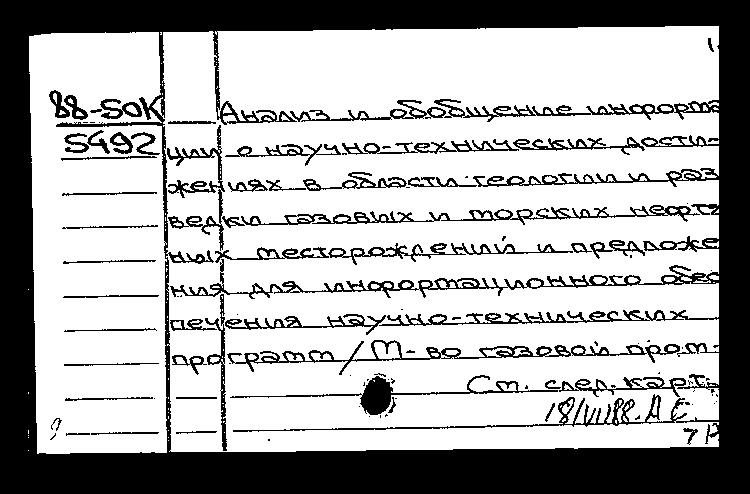 1.
88-50К Анализ и обобщение информа
5492 ции о научно-технических дости-
жениях в области геологии и раз
ведки газовых и морских нефтя
ных месторождений и предложе
ния для информационного обес
печения научно-технических
программ / М-во газовой пром-
См. след. карт.
18/VII88. А Е.